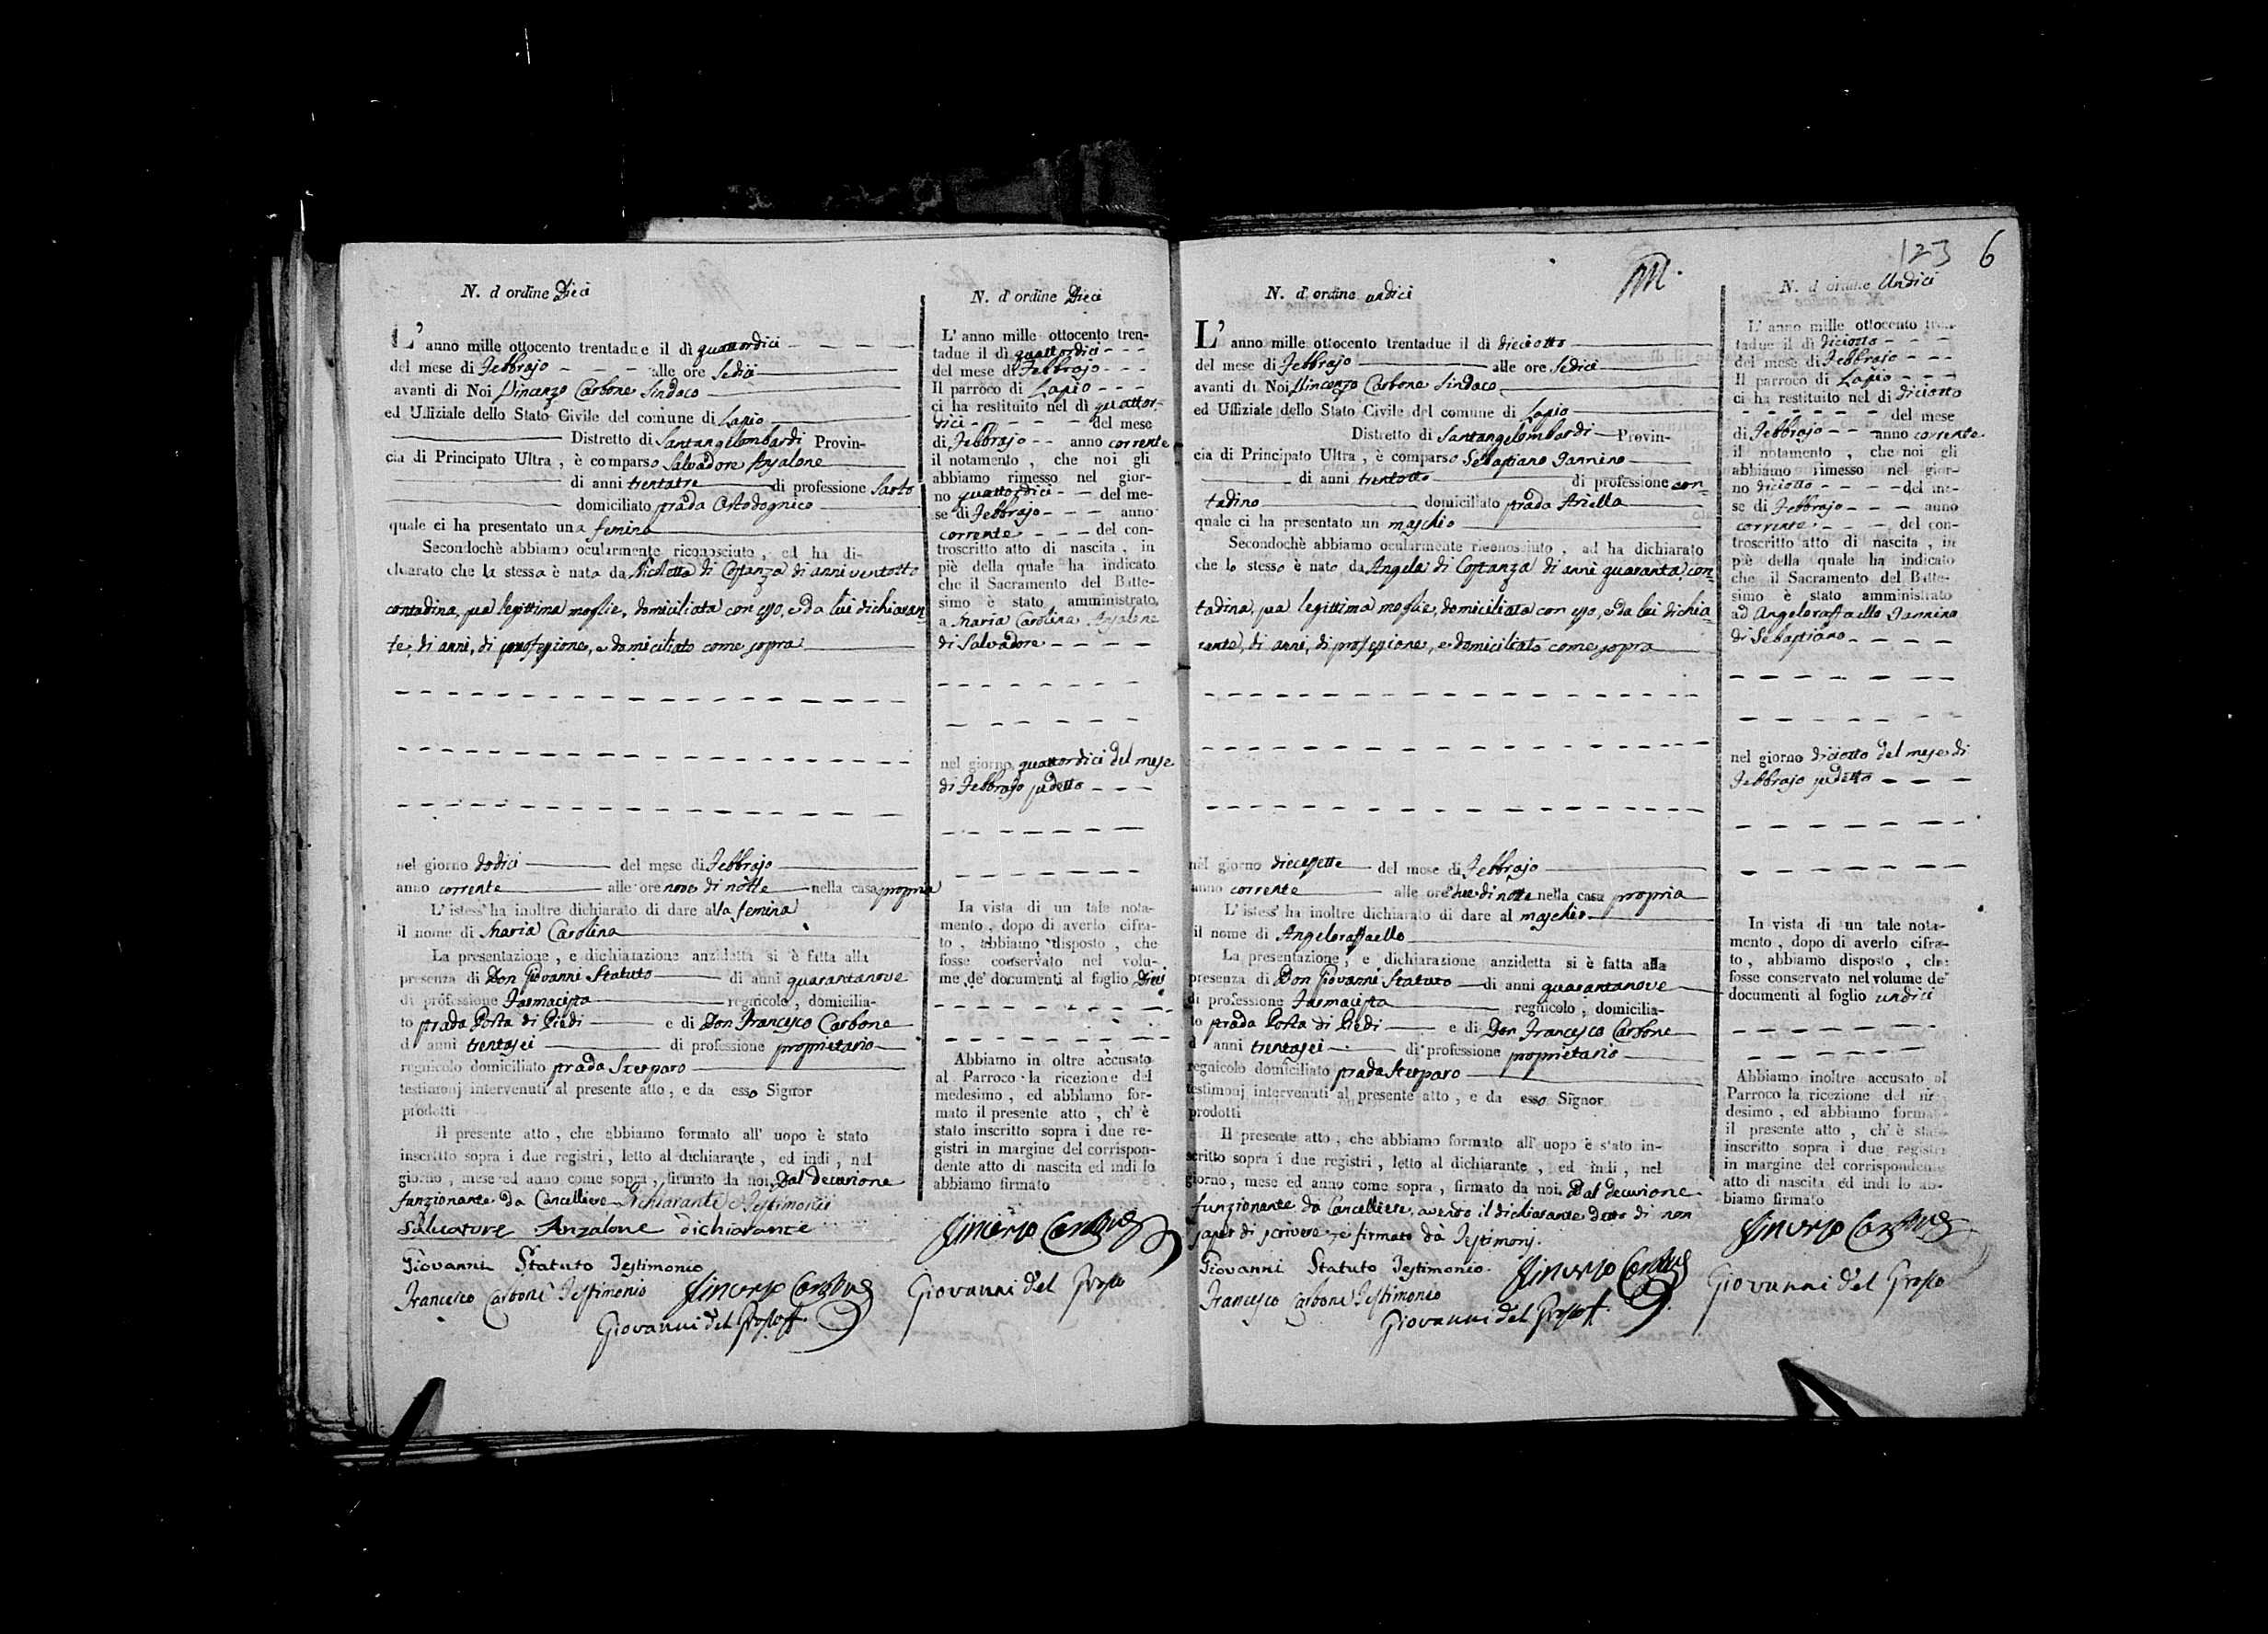 N. d'ordine Dieci
L' anno mille ottocento trentadue il dì quattordici
del mese di Febbrajo alle ore Sedici
avanti di Noi Vincenzo Carbone Sindaco
ed Uffiziale dello Stato Civile del comune di Lapio
Distretto di Santangelombardi Provin-
cia di Principato Ultra, è comparso Salvadore Anzalone
di anni trentatre di professione Sarto
domiciliato strada
quale ci ha presentato una femina
Secondochè abbiamo ocularmente riconosciuto, ed ha di-
chiarato che la stessa è nata da Nicoletta di Costanza di anni ventotto
contadina, sua legittima moglie, domiciliata con esso, e da lui dichiaran-
te, di anni, di professione, e domiciliato come sopra
nel giorno dodici del mese di Febbrajo
anno corrente alle ore nove di notte nella casa propria
L' istess' ha inoltre dichiarato di dare alla femina
il nome di Maria Carolina
La presentazione, e dichiarazione anzidetta si è fatta alla
presenza di Don Giovanni Statuto di anni quarantanove
di professione Farmacista regnicolo, domicilia-
to strada Porta di Piedi e di Don Francesco Carbone
di anni trentasei di professione proprietario
regnicolo domiciliato strada Sterparo
testimonj intervenuti al presente atto, e da esso Signor
prodotti
Il presente atto, che abbiamo formato all' uopo è stato
inscritto sopra i due registri, letto al dichiarante, ed indi, nel
giorno, mese ed anno come sopra, firmato da noi, Dal decurione
funzionante da Cancelliere Dichiarante e Testimonii
Salvatore Anzalone dichiarante
Giovanni Statuto Testimonio
Francesco Carbone Testimonio Vincenzo Carbone
Giovanni del Grosso
N. d'ordine Dieci
L' anno mille ottocento tren-
tadue il dì quattordici
del mese di Febbrajo
Il parroco di Lapio
ci ha restituito nel dì quattor-
dici del mese
di Febbrajo anno corrente
il notamento, che noi gli
abbiamo rimesso nel gior-
no quattordici del me-
se di Febbrajo anno
corrente del con-
troscritto atto di nascita, in
piè della quale ha indicato
che il Sacramento del Batte-
simo è stato amministrato
a Maria Carolina Anzalone
di Salvadore
nel giorno quattordici del mese
di Febbrajo sudetto
In vista di un tale nota-
mento, dopo di averlo cifra-
to, abbiamo disposto, che
fosse conservato nel volu-
me de' documenti al foglio Dieci
Abbiamo in oltre accusato
al Parroco la ricezione del
medesimo, ed abbiamo for-
mato il presente atto, ch' è
stato inscritto sopra i due re-
gistri in margine del corrispon-
dente atto di nascita ed indi lo
abbiamo firmato
Vincenzo Carbone
Giovanni del Grosso
123 6
N. d'ordine undici
L' anno mille ottocento trentadue il dì dieciotto
del mese di Febbrajo alle ore Sedici
avanti di Noi Vincenzo Carbone Sindaco
ed Uffiziale dello Stato Civile del comune di Lapio
Distretto di Santangelombardi Provin-
cia di Principato Ultra, è comparso Sebastiano Iannino
di anni trentotto di professione con-
tadino domiciliato strada Ariella
quale ci ha presentato un maschio
Secondochè abbiamo ocularmente riconosciuto, ad ha dichiarato
che lo stesso è nato da Angela di Costanza di anni quaranta con-
tadina, sua legittima moglie, domiciliata con esso, e da lui dichia-
rante, di anni, di professione, e domiciliato come sopra
nel giorno diecesette del mese di Febbrajo
anno corrente alle ore due di notte nella casa propria
L' istess' ha inoltre dichiarato di dare al maschio
il nome di Angeloraffaello
La presentazione, e dichiarazione anzidetta si è fatta alla
presenza di Don Giovanni Statuto di anni quarantanove
di professione Farmacista regnicolo, domicilia-
to strada Porta di Piedi e di Don Francesco Carbone
di anni trentasei di professione proprietario
regnicolo domiciliato strada Sterparo
testimonj intervenuti al presente atto, e da esso Signor
prodotti
Il presente atto, che abbiamo formato all' uopo è stato in-
scritto sopra i due registri, letto al dichiarante, ed indi, nel
giorno, mese ed anno come sopra, firmato da noi. Dal decurione
funzionante da Cancelliere, avendo il dichiarante detto di non
saper di scrivere, e firmato dà Testimonj.
Giovanni Statuto Testimonio. Vincenzo Carbone
Francesco Carbone Testimonio
Giovanni del Grosso
N. d'ordine Undici
L' anno mille ottocento tren-
tadue il dì diciotto
del mese di Febbrajo
Il parroco di Lapio
ci ha restituito nel dì diciotto
del mese
di Febbrajo anno corrente
il notamento, che noi gli
abbiamo rimesso nel gior-
no diciotto del me-
se di Febbrajo anno
corrente del con-
troscritto atto di nascita, in
piè della quale ha indicato
che il Sacramento del Batte-
simo è stato amministrato
ad Angeloraffaello Iannino
di Sebastiano
nel giorno diciotto del mese di
Febbrajo sudetto
In vista di un tale nota-
mento, dopo di averlo cifra-
to, abbiamo disposto, che
fosse conservato nel volume de'
documenti al foglio undici
Abbiamo inoltre accusato al
Parroco la ricezione del me-
desimo, ed abbiamo formato
il presente atto, ch' è stato
inscritto sopra i due registri
in margine del corrispondente
atto di nascita ed indi lo ab-
biamo firmato
Vincenzo Carbone
Giovanni del Grosso